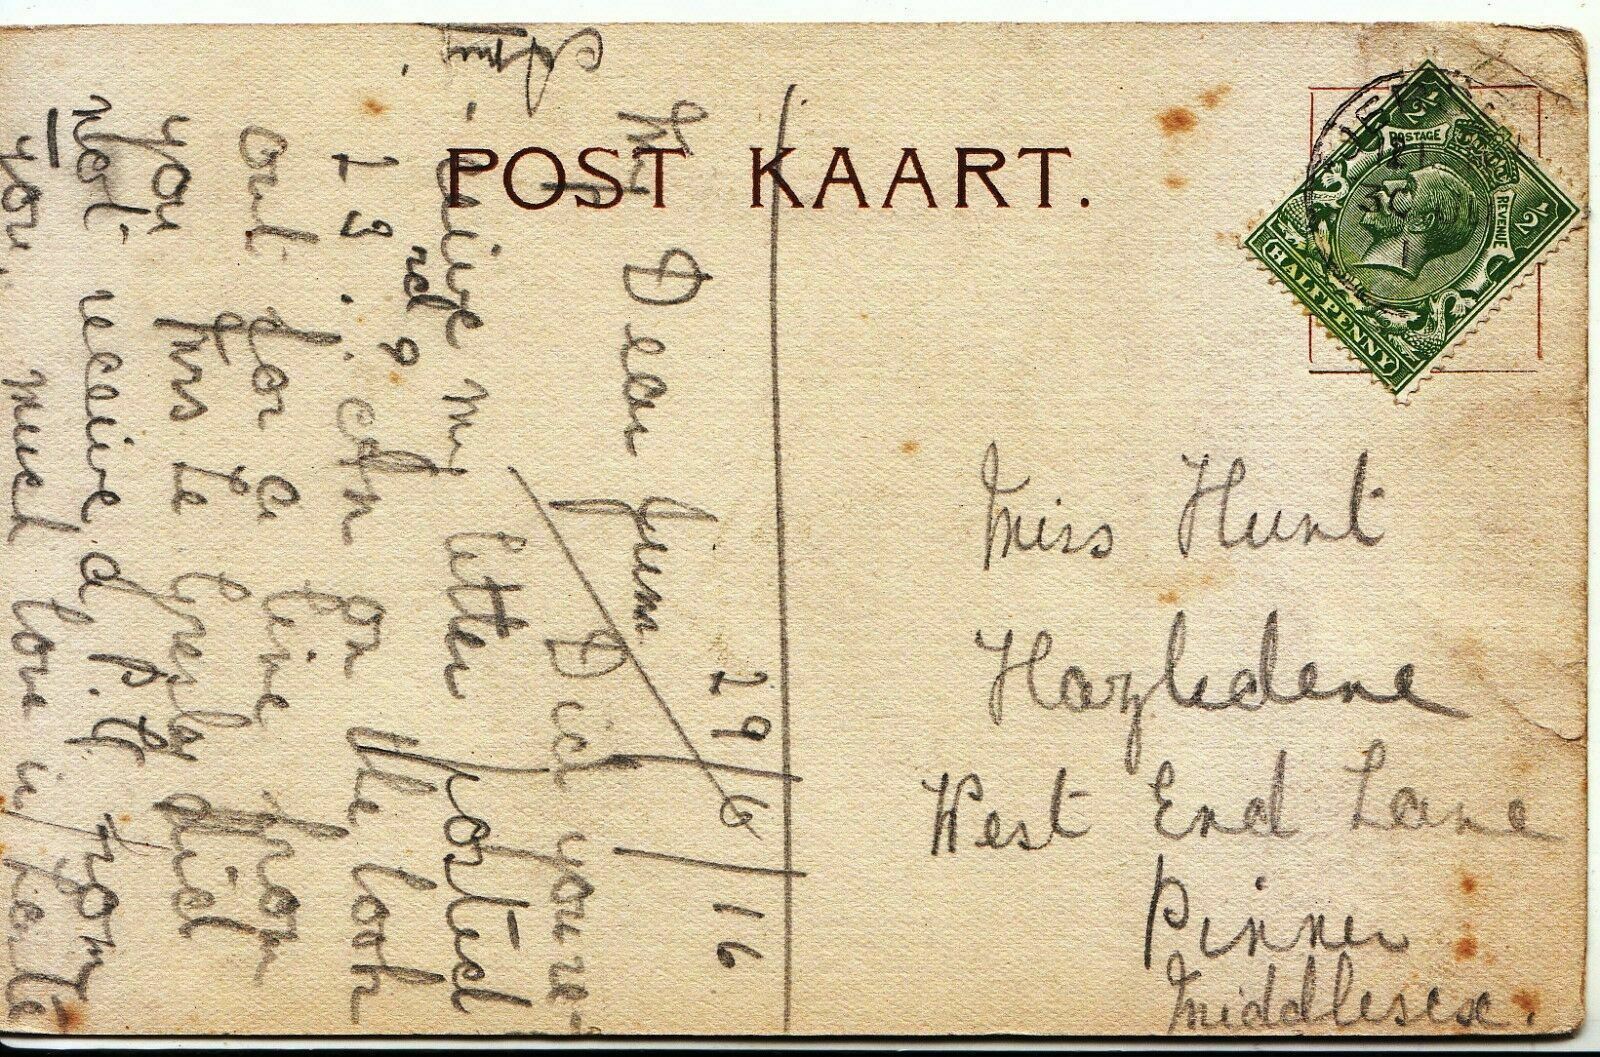 POST KAART.
½
½
POSTAGE
REVENUE
HALFPENNY
29/6/16
My Dear Jim
Did you re-
ceive my letter posted
23rd? I am on the look
out for a line from
you
Mrs Le did
not receive a p.c. from
you, much love in haste
Miss Hunt
Hazledene
West End Lane
Pinner
Middlesex.